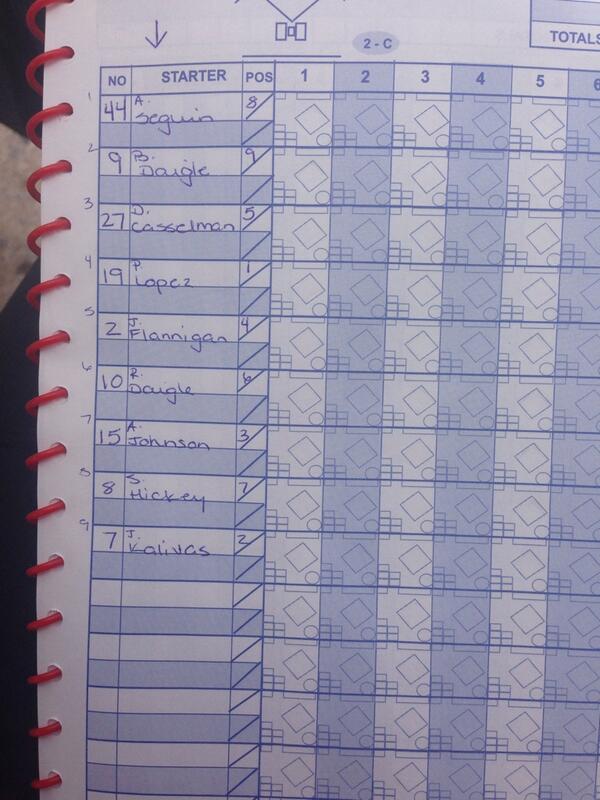 2 - C
TOTALS
NO STARTER POS 1 2 3 4 5 6
1 44 A. Seguin 8
2 9 B. Daigle 9
3 27 D. Casselman 5
4 19 P. Lopez 1
5 2 J. Flannigan 4
6 10 R. Daigle 6
7 15 A. Johnson 3
8 8 S. Hickey 7
9 7 J. Kalivas 2